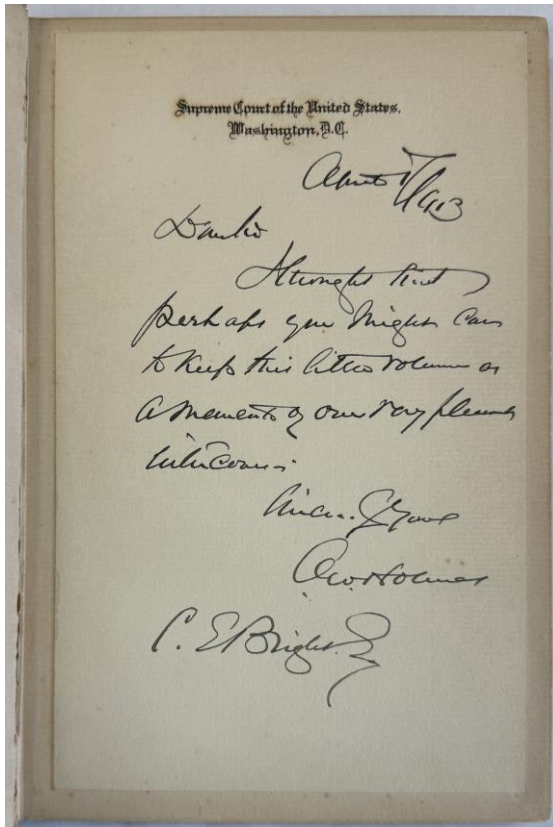 Supreme Court of the United States.
Washington, D.C.
April 1913
Dear Sir
I thought that
perhaps you might care
to keep this little volume as
a memento of our very pleasant
intercourse.
Sincerely Yours
O.W. Holmes
C. E Bright. Esq